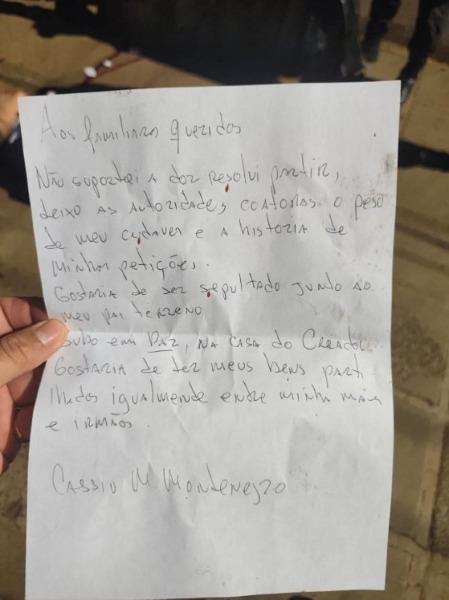 Aos familiares queridos
Não suportei a dor resolvi partir,
deixo as autoridades coatoras o peso
de meu cadaver e a historia de
minhas petições.
Gostaria de ser sepultado junto ao
meu pai terreno
Subo em Paz, na casa do Creador
Gostaria de ter meus bens parti
lhados igualmente entre minha mãe
e irmãos.
Cassio M Montenegro